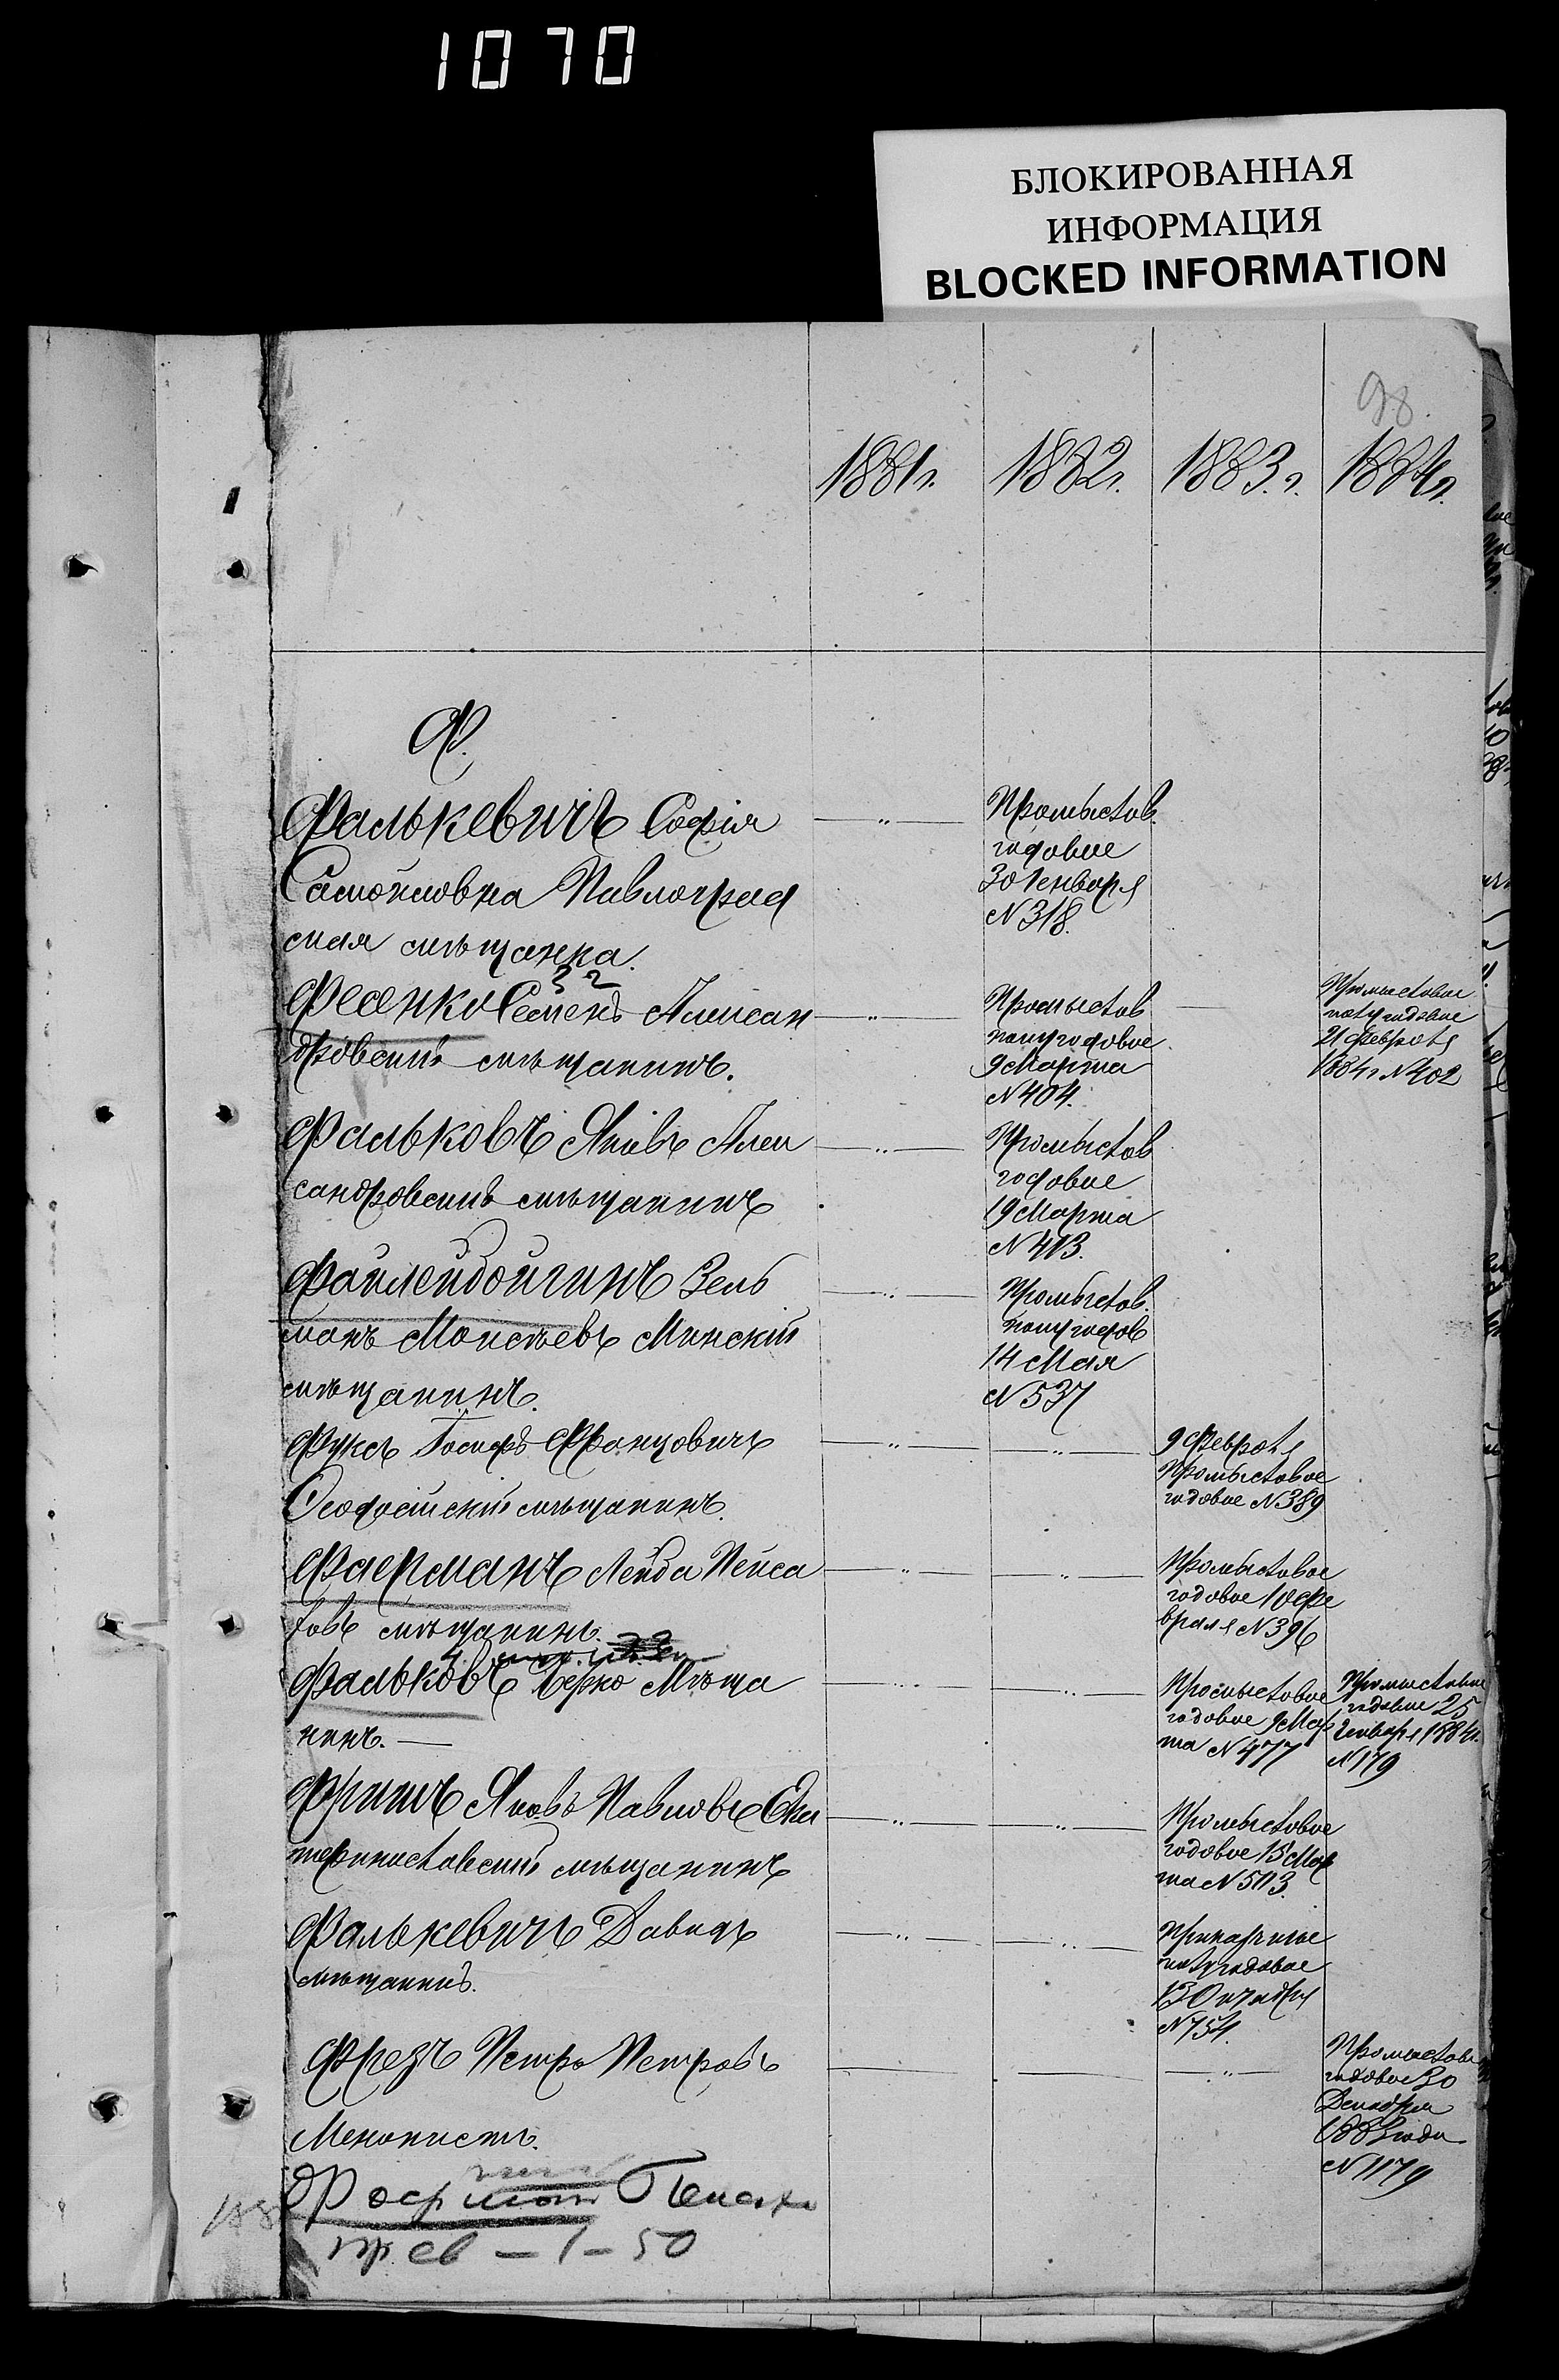 1070
БЛОКИРОВАННАЯ
ИНФОРМАЦИЯ
BLOCKED INFORMATION
98.
1881г. 1882г. 1883.г. 1884г.
Ф.
Фалькевичъ Софія
Самойловна Павлоград
ская мѣщанка.
Промыслов.
годовое
30 Генваря
N 318.
32
Фесенко Семенъ Алексан
дровскій мѣщанинъ.
Промыслов
полугодовое
9 Марта
N 404.
Промысловое
полугодовое
21 Февраля
1884г N 402
Фальковъ Яковъ Алек
сандровскій мѣщанинъ
Промыслов
годовое
19 Марта
N 413.
Файлейбойгинъ Зель
манъ Моисѣевъ Минскій
мѣщанинъ.
Промыслов.
полугодов
14 Мая
N 537
Фуксъ Іосифъ Францовичъ
Феодосійскій мѣщанинъ.
9 Февраля
Промысловое
годовое N 389
Фаерманъ Лейба Пейса
ховъ мѣщанинъ.
Промысловое
годовое 10 Фе
враля N 396
Фальковъ Берко Мѣща
нинъ. —
Промысловое
годовое 9 Мар
та N 477
Промысловое
годовое 25
Генваря 1884г.
N 179
Фришъ Яковъ Павловъ Ека
теринославскій мѣщанинъ
Промысловое
годовое 15 Мар
та N 503.
Фалькевичъ Давидъ
мѣщанинъ.
Приказчичье
полугодовое
13 Октября
N 754.
Фрезъ Петръ Петровъ
Менонистъ.
Промыслов
годовое 30
Декабря
1883 года
N 1179
пр. св – 1 – 50